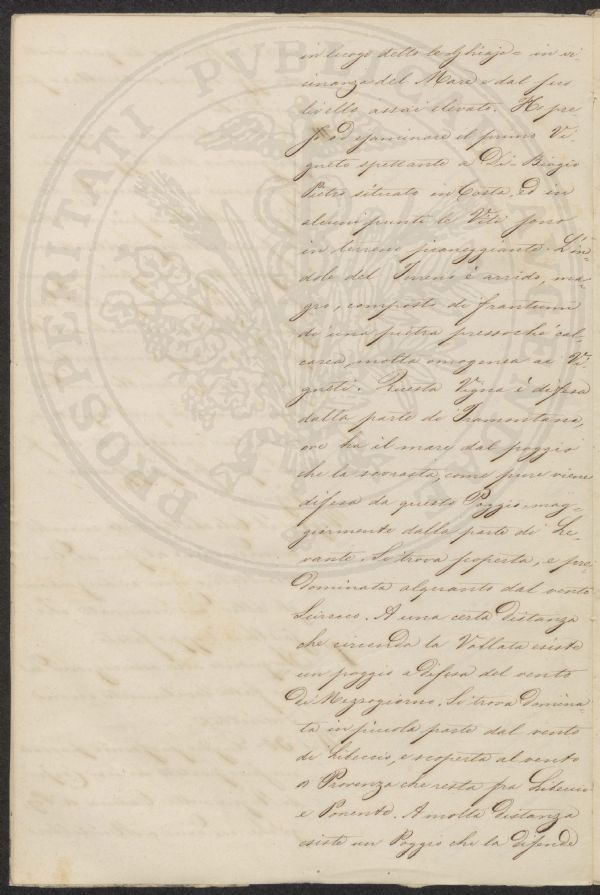 in luogo detto le Ghiaje = in vi-
cinanza del Mare e dal suo
livello assai elevato. Ho pre-
so ad esaminare il primo Vi-
gneto spettante a Di-Biagio
Pietro situato in Costa, ed in
alcuni punti le Viti sono
in terreno pianeggiante. L'in-
dole del Terreno è arrido, ma-
gro, composto di frantumi
di una pietra pressochè cal-
carea, molto omogenea ai Vi-
gneti. Questa Vigna è difesa
dalla parte di Tramontana,
ove ha il mare dal poggio
che la sovrasta, come pure viene
difesa da questo Poggio, mag-
giormente dalla parte di Le-
vante. Si trova scoperta, e pre-
dominata alquanto dal vento
Scirocco. A una certa distanza
che circonda la Vallata esiste
un poggio a difesa del vento
di Mezzogiorno. Si trova domina-
ta in piccola parte dal vento
di Libeccio, e scoperta al vento
di Provenza che resta fra Libeccio
e Ponente. A molta distanza
esiste un Poggio che la difende
PROSPERITATI PVBL